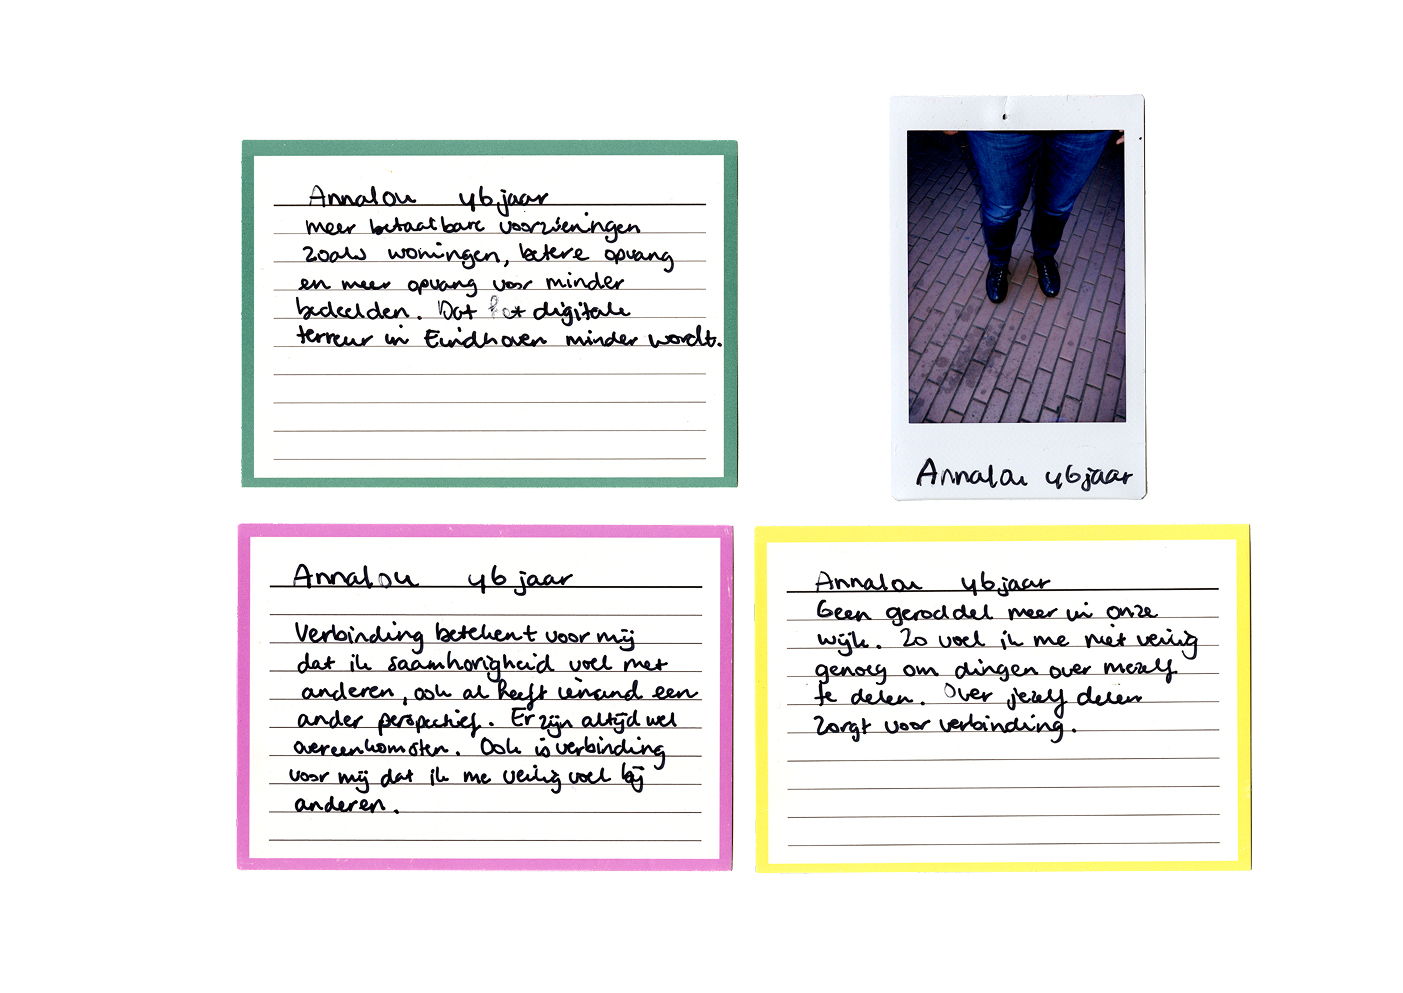 Annalou 46 jaar
meer betaalbare voorzieningen
zoals woningen, betere opvang
en meer opvang voor minder
bedeelden. Dat digitale
terreur in Eindhoven minder wordt.
Annalou 46 jaar
Annalou 46 jaar
Verbinding betekent voor mij
dat ik saamhorigheid voel met
anderen, ook al heeft iemand een
ander perspectief. Er zijn altijd wel
overeenkomsten. Ook is verbinding
voor mij dat ik me veilig voel bij
anderen.
Annalou 46 jaar
Geen geroddel meer in onze
wijk. Zo voel ik me niet veilig
genoeg om dingen over mezelf
te delen. Over jezelf delen
zorgt voor verbinding.